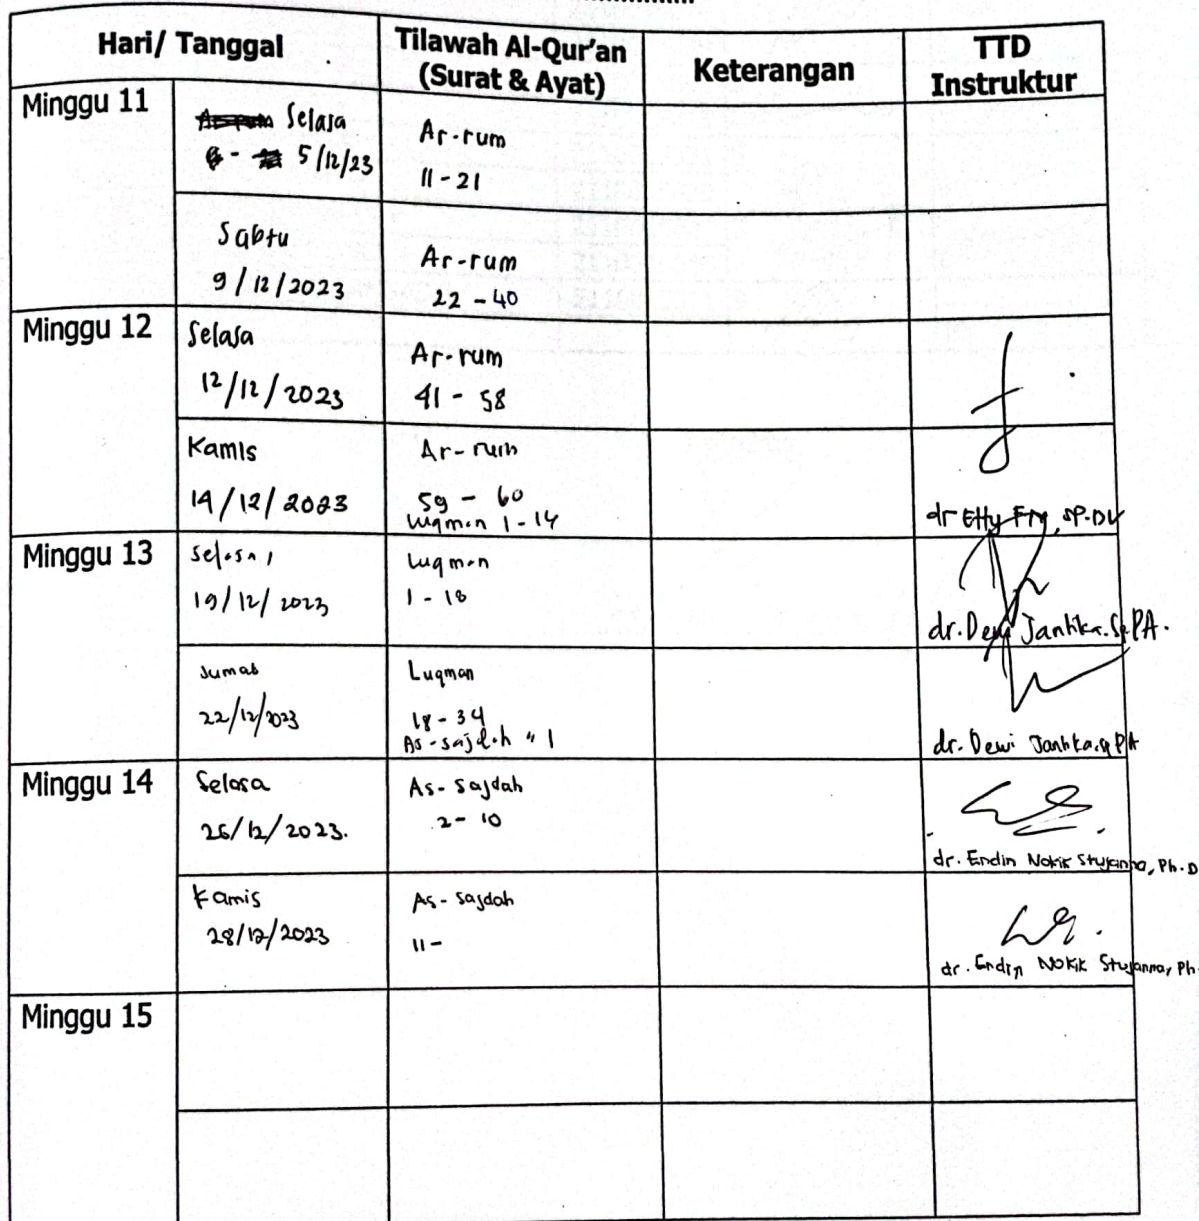 Hari/ Tanggal
Tilawah Al-Qur'an
(Surat & Ayat)
Keterangan
TTD
Instruktur
Minggu 11
Selasa
5/12/23
Ar-rum
11-21
Sabtu
9/12/2023
Ar-rum
22-40
Minggu 12
Selasa
12/12/2023
Ar-rum
41 - 58
Kamis
14/12/2023
Ar-rum
59 - 60
Luqman 1-14
dr Etty
SP.DV
Minggu 13
19/12/2023
Luqman
1 - 18
dr. Dewi Jantika. Sp.PA.
Jumat
22/12/2023
Luqman
18-34
As-sajdah " 1
dr. Dewi Jantika. Sp PA
Minggu 14
Selasa
26/12/2023.
As-Sajdah
2- 10
dr. Endin Nokik Stujanna, Ph.D
Kamis
28/12/2023
As-Sajdah
11-
dr. Endin Nokik Stujanna, Ph.
Minggu 15